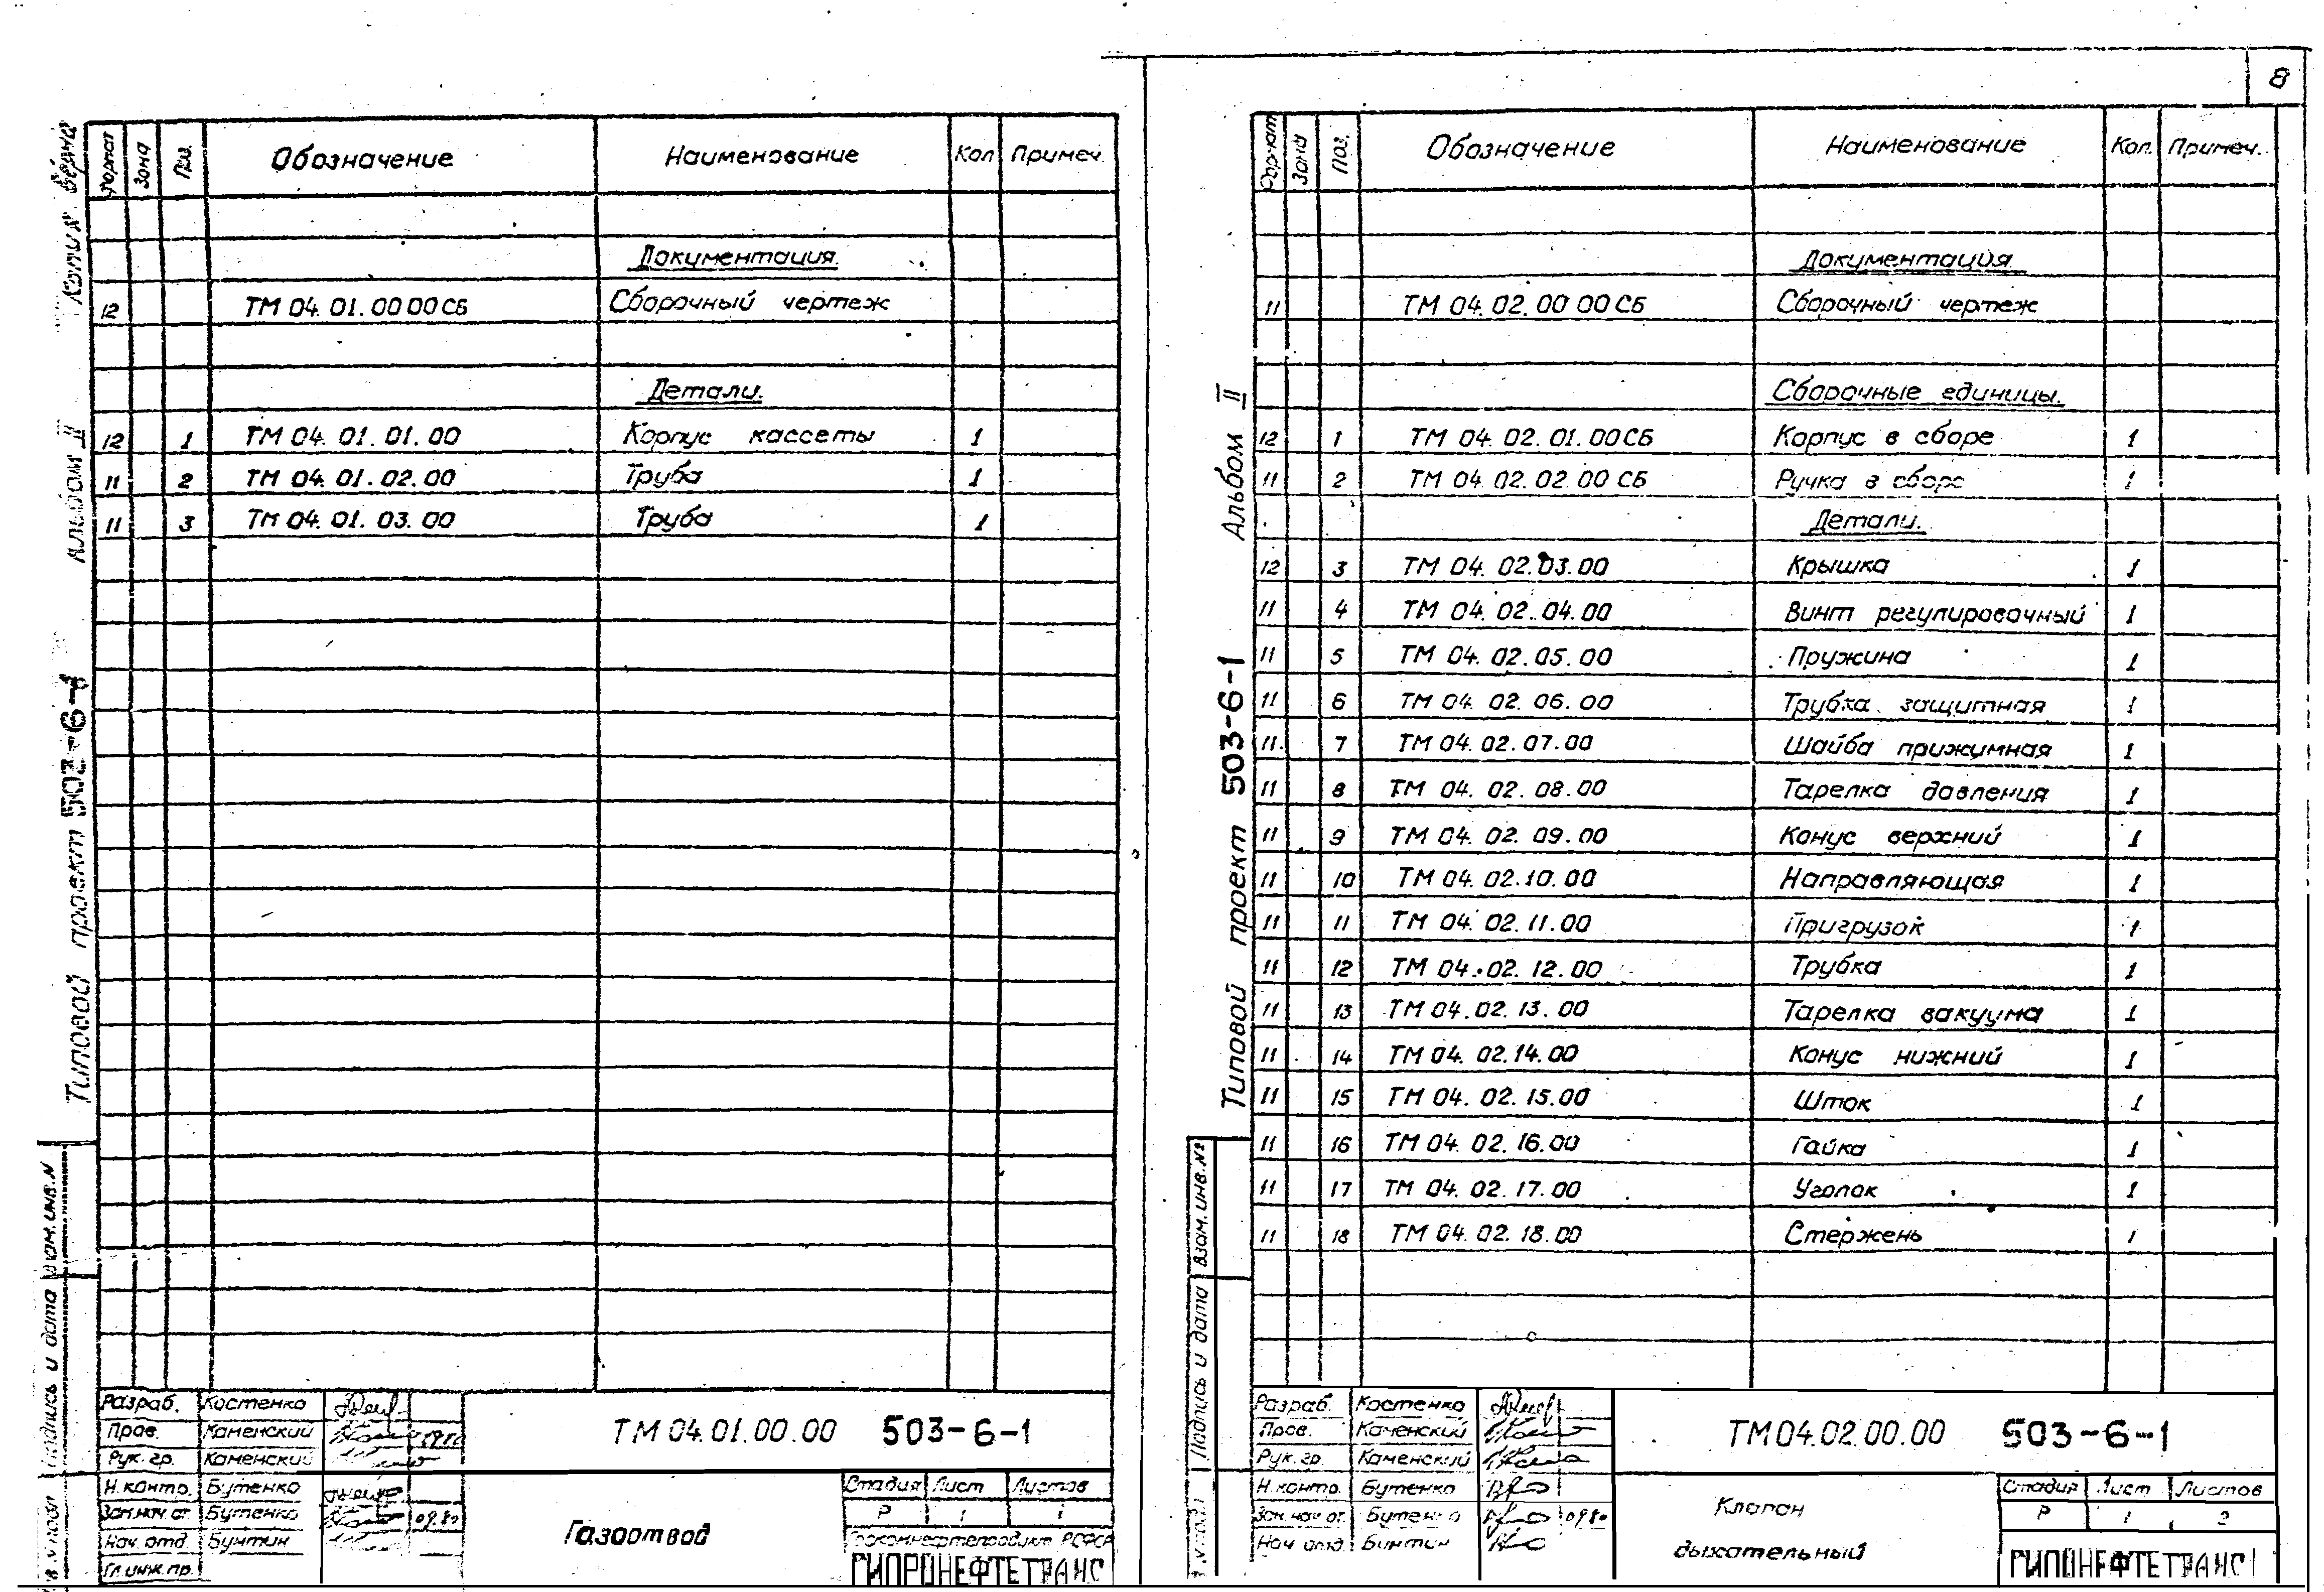 Копия верна
Альбом II
Типовой проект 503-6-1
Взам. инв. N
Подпись и дата
Формат Зона Поз. Обозначение Наименование Кол Примеч.
Документация.
12 ТМ 04. 01. 00 00 СБ Сборочный чертеж
Детали.
12 1 ТМ 04. 01. 01. 00 Корпус кассеты 1
11 2 ТМ 04. 01. 02. 00 Труба 1
11 3 ТМ 04. 01. 03. 00 Труба 1
Разраб. Костенко
Пров. Каменский
Рук. гр. Каменский
ТМ 04.01.00.00 503-6-1
Н. контр. Бутенко
Зам. нач. от. Бутенко 09.80
Нач. отд. Бунтин
Гл. инж. пр.
Газоотвод
Стадия Лист Листов
Р 1 1
Госкомнефтепродукт РСФСР
ГИПРОНЕФТЕТРАНС
8
Альбом II
Типовой проект 503-6-1
Взам. инв. №
Подпись и дата
Формат Зона Поз. Обозначение Наименование Кол. Примеч.
Документация
11 ТМ 04. 02. 00 00 СБ Сборочный чертеж
Сборочные единицы.
12 1 ТМ 04. 02. 01. 00 СБ Корпус в сборе 1
11 2 ТМ 04. 02. 02. 00 СБ Ручка в сборе 1
Детали.
12 3 ТМ 04. 02. 03. 00 Крышка 1
11 4 ТМ 04. 02. 04. 00 Винт регулировочный 1
11 5 ТМ 04. 02. 05. 00 Пружина 1
11 6 ТМ 04. 02. 06. 00 Трубка защитная 1
11 7 ТМ 04. 02. 07. 00 Шайба прижимная 1
11 8 ТМ 04. 02. 08. 00 Тарелка давления 1
11 9 ТМ 04. 02. 09. 00 Конус верхний 1
11 10 ТМ 04. 02. 10. 00 Направляющая 1
11 11 ТМ 04. 02. 11. 00 Пригрузок 1
11 12 ТМ 04. 02. 12. 00 Трубка 1
11 13 ТМ 04. 02. 13. 00 Тарелка вакуума 1
11 14 ТМ 04. 02. 14. 00 Конус нижний 1
11 15 ТМ 04. 02. 15. 00 Шток 1
11 16 ТМ 04. 02. 16. 00 Гайка 1
11 17 ТМ 04. 02. 17. 00 Уголок 1
11 18 ТМ 04. 02. 18. 00 Стержень 1
Разраб. Костенко
Пров. Каменский
Рук. гр. Каменский
ТМ 04.02.00.00 503-6-1
Н. контр. Бутенко
Зам. нач. от. Бутенко 09.80
Нач. отд. Бунтин
Клапан
дыхательный
Стадия Лист Листов
Р 1 2
ГИПОНЕФТЕТРАНС